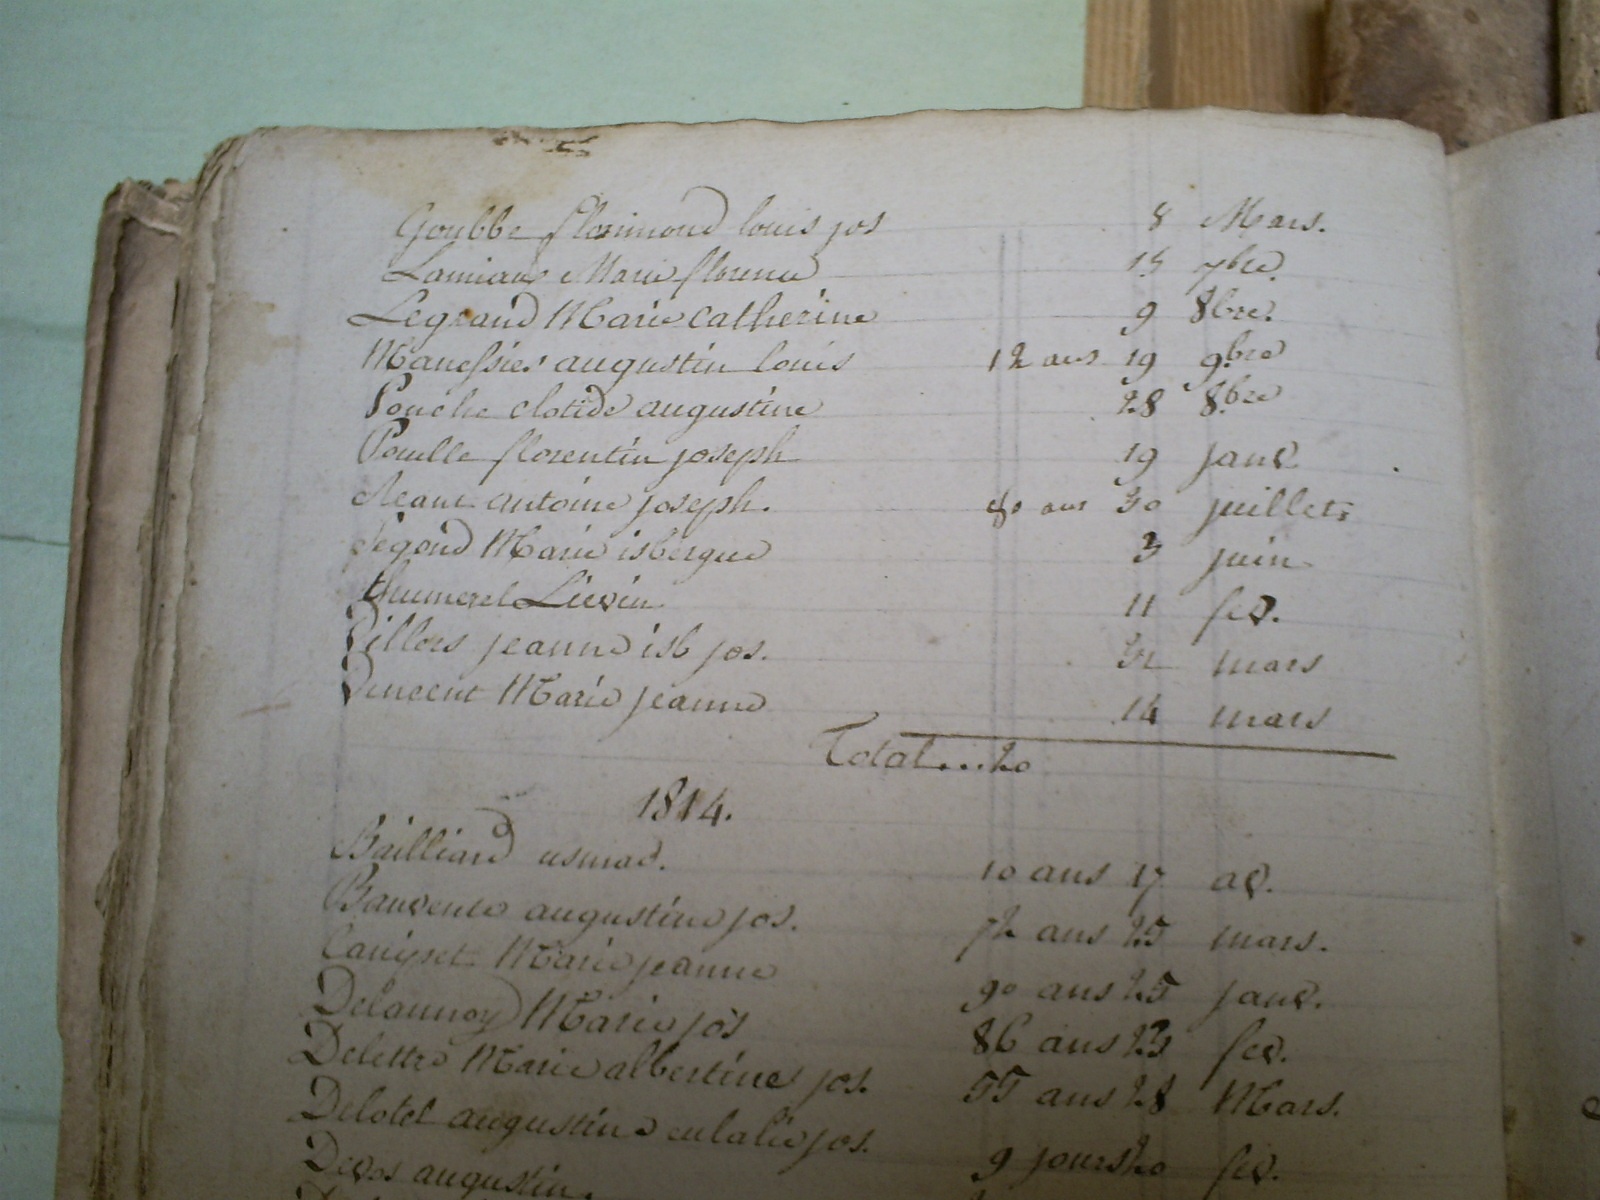 Goubbe florimond louis jos 8 Mars.
Lamiaux Marie florence 15 7bre.
Legrand Marie catherine 9 8bre.
Manessier augustin louis 12 ans 19 9bre
Pouche clotide augustine 28 8bre
Pouille florentin joseph 19 janv
antoine joseph. 80 ans 30 juillet
Segond Marie isbergue 3 juin
thumerel Lievin 11 fev.
jeanne isb jos. mars
Vincent Marie jeanne 14 mars
Total...20
1814.
Bailliard usmad. 10 ans 17 av.
augustine jos. 72 ans 25 mars.
Marie jeanne 90 ans 25 janv.
Delannoy Marie jos 86 ans 23 fev.
Delettre Marie albertine jos. 55 ans 28 Mars.
Delotel augustine eulalie jos. 9 jours 20 fev.
Devos augustin.